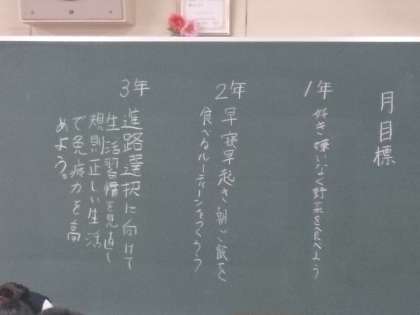 月目標
1年
好き嫌いなく野菜を食べよう
2年
早寝早起き、朝ご飯を
食べるルーティーンをつくろう
3年
進路選択に向けて
生活習慣を見直し
規則正しい生活
で免疫力を高
めよう。